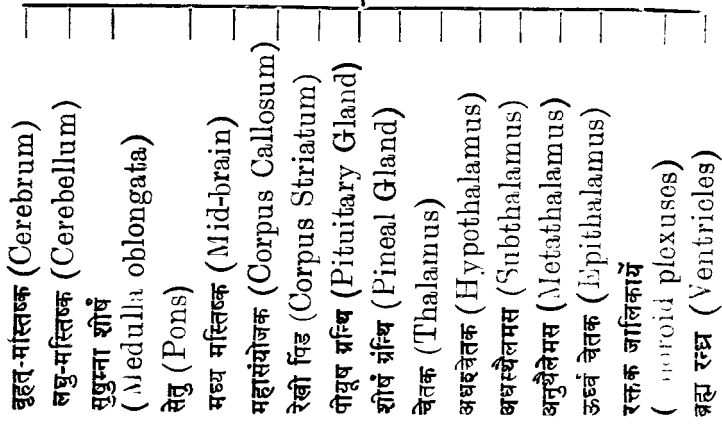 बृहत्-मस्तिष्क (Cerebrum)
लघु-मस्तिष्क (Cerebellum)
सुषुम्ना शीर्ष
(Medulla oblongata)
सेतु (Pons)
मध्य मस्तिष्क (Mid-brain)
महासंयोजक (Corpus Callosum)
रेखी पिंड (Corpus Striatum)
पीयूष ग्रन्थि (Pituitary Gland)
शीर्ष ग्रंन्थि (Pineal Gland)
चेतक (Thalamus)
अधश्चेतक (Hypothalamus)
अधस्थैलमस (Subthalamus)
अनुथैलेमस (Metathalamus)
ऊर्ध्व चेतक (Epithalamus)
रक्तक जालिकायें
( plexuses)
ब्रह्म रन्ध्र (Ventricles)